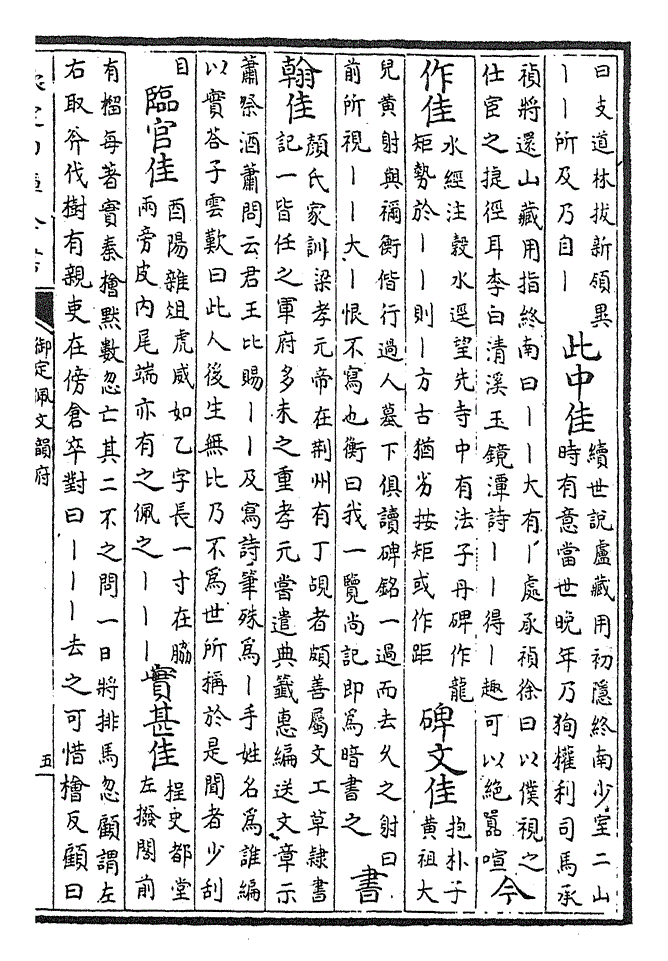 曰支道林拔新領異
丨丨所及乃自丨
此中佳
續世說盧藏用初隱終南少室二山
時有意當世晚年乃狥權利司馬承
禎將還山藏用指終南曰丨丨大有丨處承禎徐曰以僕視之
仕宦之捷徑耳李白清溪玉鏡潭詩丨丨得丨趣可以絕囂喧
今
作佳
水經注穀水逕望先寺中有法子丹碑作龍
矩勢於丨丨則丨方古猶劣按矩或作距
碑文佳
抱朴子
黄祖大
兒黄射與禰衡偕行過人墓下俱讀碑銘一過而去久之射曰
前所視丨丨大丨恨不寫也衡曰我一覽尚記即為暗書之
書
翰佳
顔氏家訓梁孝元帝在荆州有丁覘者頗善屬文工草隸書
記一皆任之軍府多未之重孝元嘗遣典籤惠編送文章示
蕭祭酒蕭問云君王比賜丨丨及寫詩筆殊為丨手姓名為誰編
以實荅子雲歎曰此人後生無比乃不為世所稱於是聞者少刮
目
臨官佳
酉陽雜俎虎威如乙字長一寸在脇
兩旁皮内尾端亦有之佩之丨丨丨
實甚佳
桯史都堂
左撥閣前
有榴每著實秦檜默數忽亡其二不之問一日將排馬忽顧謂左
右取斧伐樹有親吏在傍倉卒對曰丨丨丨去之可惜檜反顧曰
御定佩文韻府
五